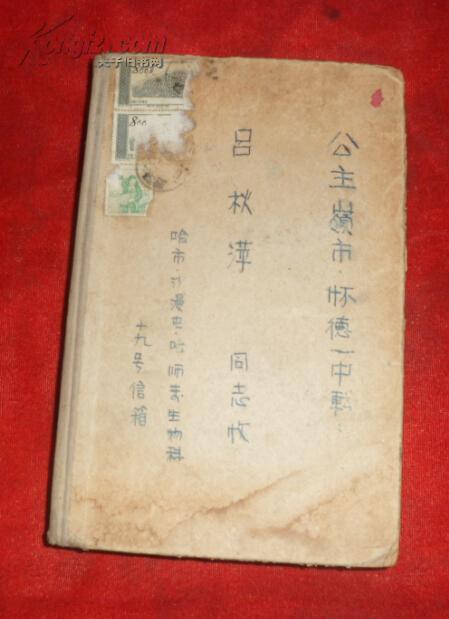 Kongfz.com
孔夫子旧书网
800
800
公主嶺市·怀德一中
吕秋萍
同志收
哈市·沙漫屯·哈师专生物科
十九号信箱